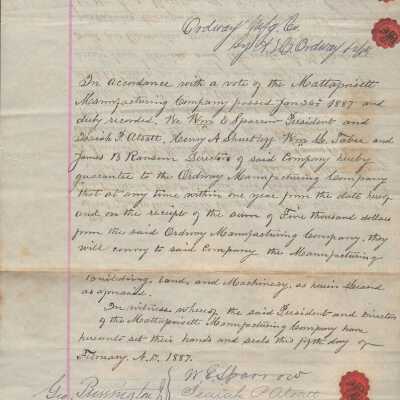 Ordway Mfg. Co.
by H. I. Ordway
In accordance with a vote of the Mattapoisett
Manufacturing Company passed Jan 24th 1887 and
duly recorded, We Wm E Sparrow President and
Isaiah P. Atsatt, Henry A Shurtleff Wm G. Taber and
James B Ransom Directors of said Company hereby
guarantee to the Ordway Manufacturing Company
that at any time within one year from the date hereof
and on the receipt of the sum of Five thousand dollars
from the said Ordway Manufacturing Company, they
will convey to said Company the Manufacturing
building, Land, and Machinery, as herein Leased
as aforesaid.
In witness whereof the said President and Directors
of the Mattapoisett Manufacturing Company have
hereunto set their hands and seals this fifth day of
February A.D. 1887.
Geo. Purrington Jr W. E. Sparrow
Isaiah P. Atsatt